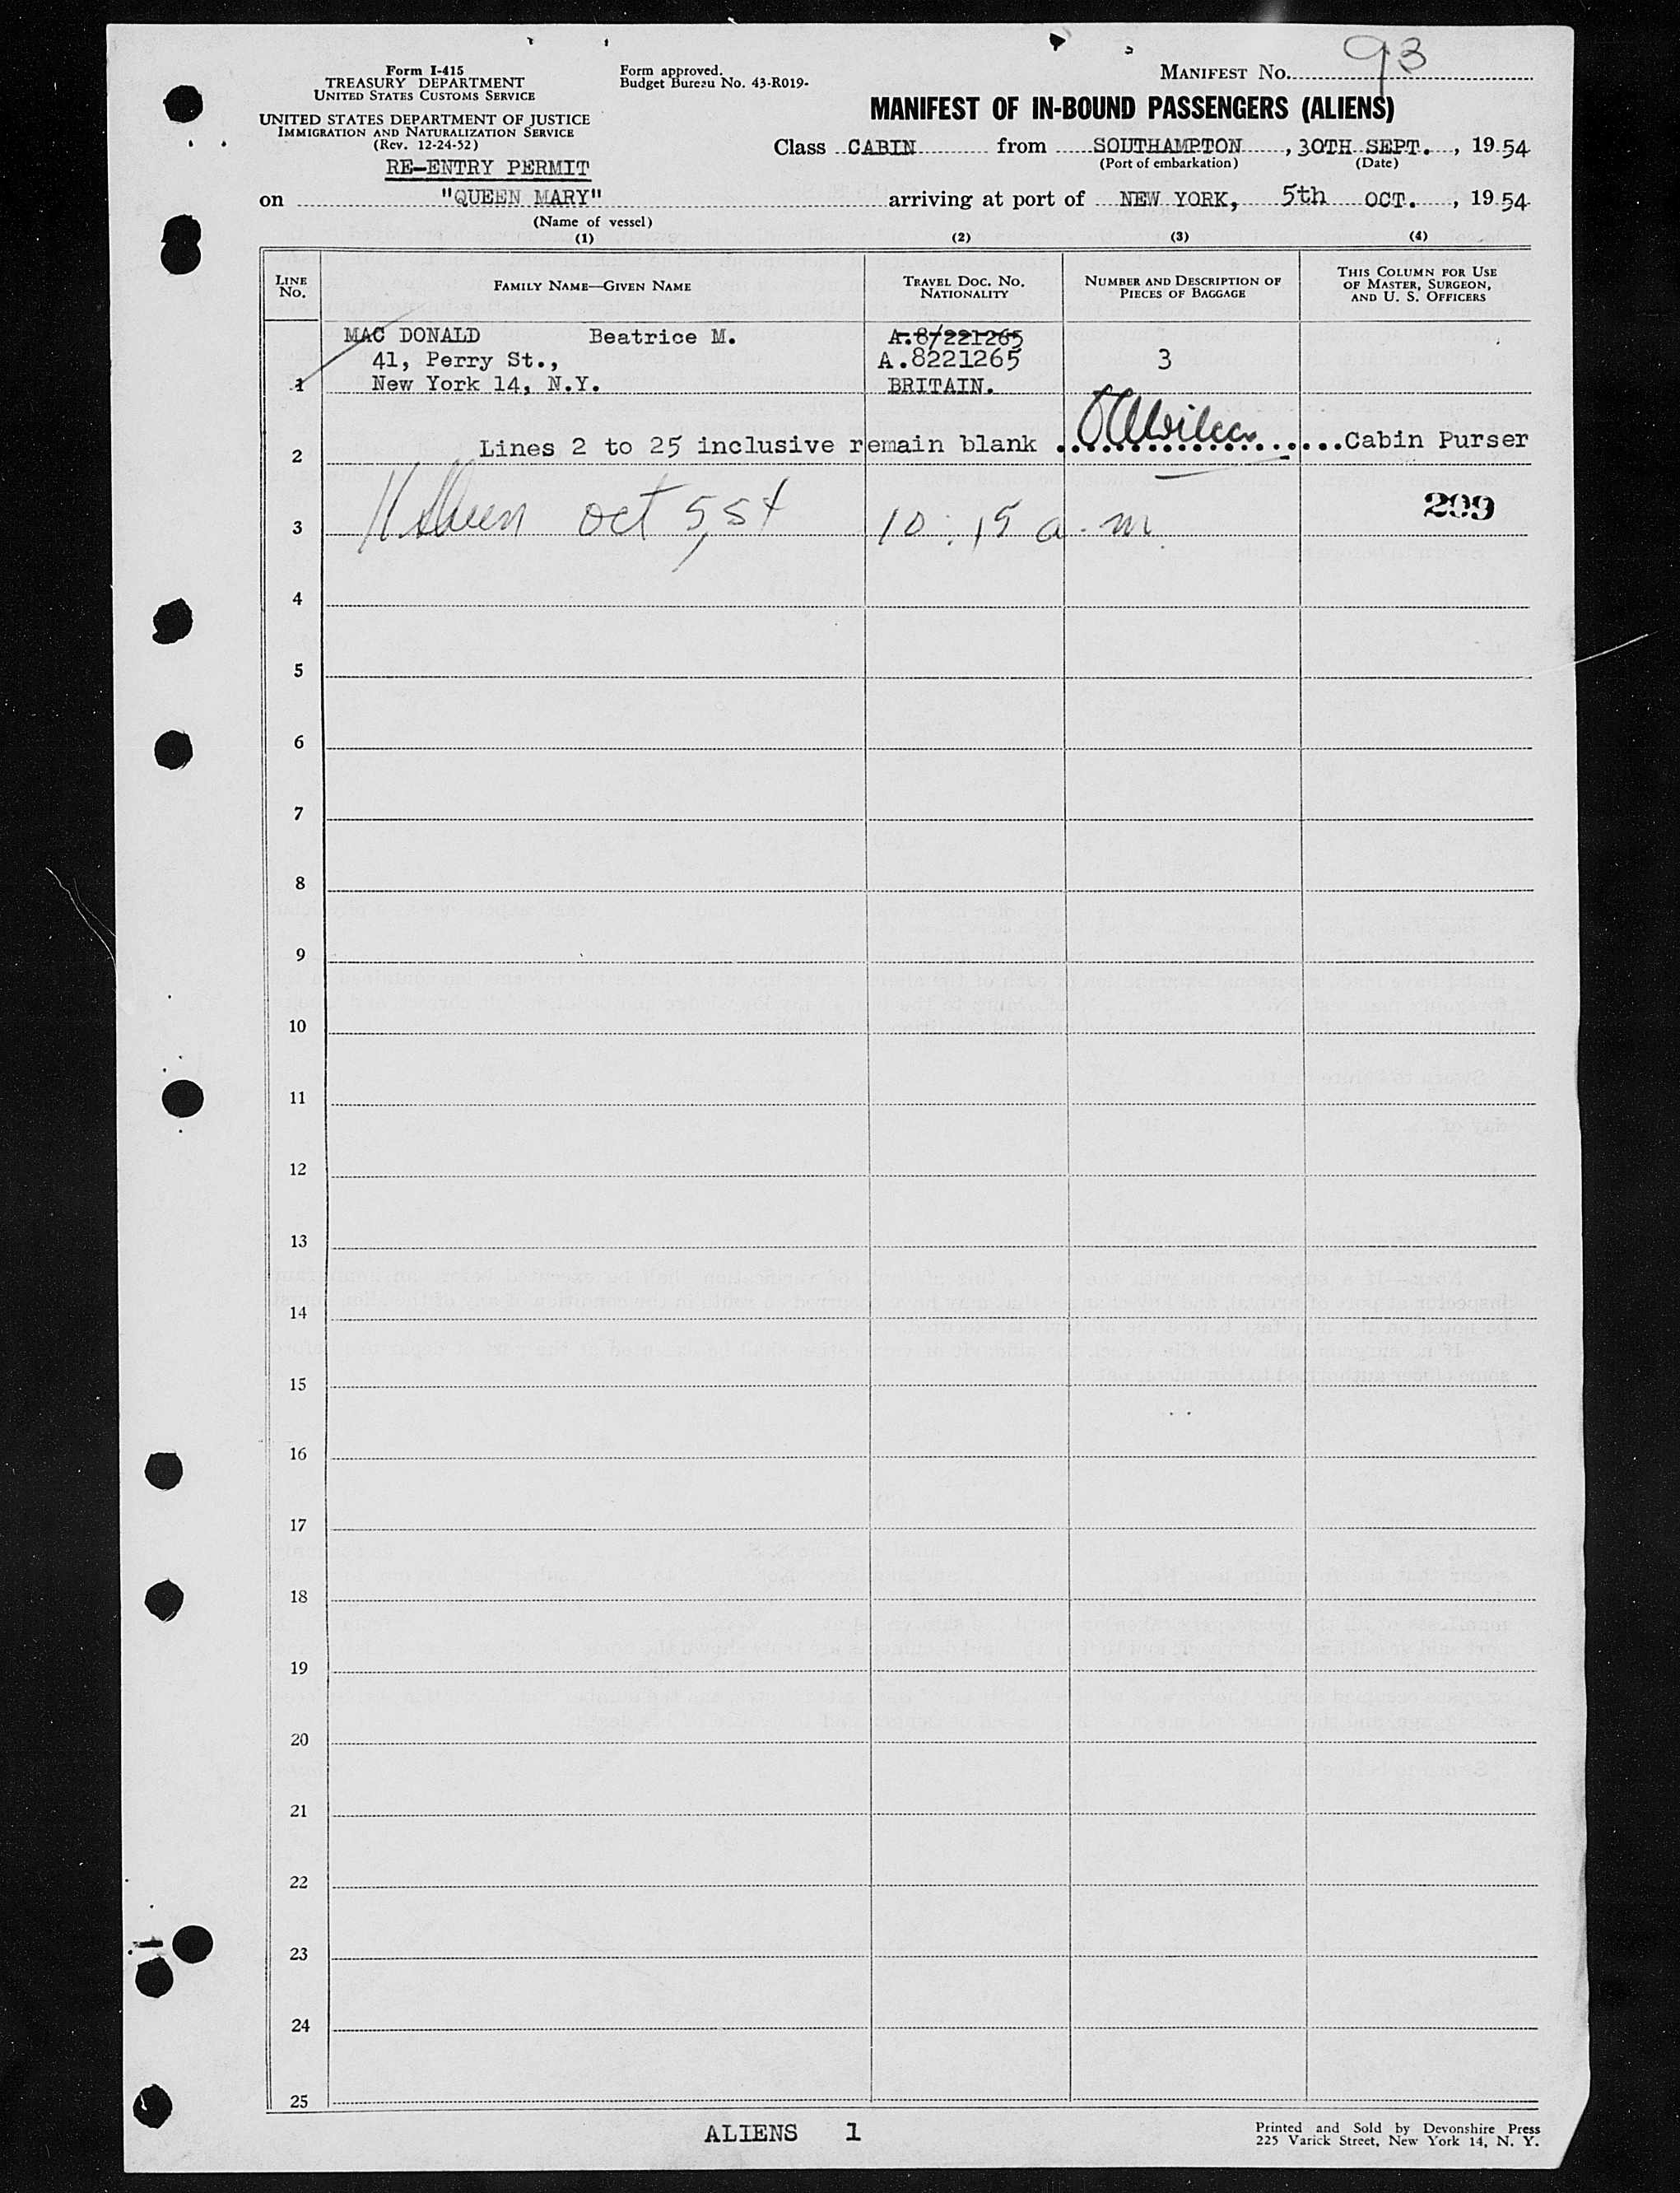 Form I-415
TREASURY DEPARTMENT
UNITED STATES CUSTOMS SERVICE
UNITED STATES DEPARTMENT OF JUSTICE
IMMIGRATION AND NATURALIZATION SERVICE
(Rev. 12-24-52)
RE-ENTRY PERMIT
Form approved.
Budget Bureau No. 43-R019-
MANIFEST NO. 93
MANIFEST OF IN-BOUND PASSENGERS (ALIENS)
Class CABIN from SOUTHAMPTON, 30TH SEPT., 1954
(Port of embarkation) (Date)
on "QUEEN MARY" arriving at port of NEW YORK, 5th OCT., 1954
(Name of vessel)
(1) (2) (3) (4)
LINE NO. FAMILY NAME—GIVEN NAME TRAVEL DOC. NO. NATIONALITY NUMBER AND DESCRIPTION OF PIECES OF BAGGAGE THIS COLUMN FOR USE OF MASTER, SURGEON, AND U. S. OFFICERS
MAC DONALD Beatrice M. A.8/221265
41, Perry St., A.8221265 3
1 New York 14, N.Y. BRITAIN.
2 Lines 2 to 25 inclusive remain blank Cabin Purser
299
3 oct 5, 54 10:15 a.m.
4
5
6
7
8
9
10
11
12
13
14
15
16
17
18
19
20
21
22
23
24
25
ALIENS 1
Printed and Sold by Devonshire Press
225 Varick Street, New York 14, N. Y.